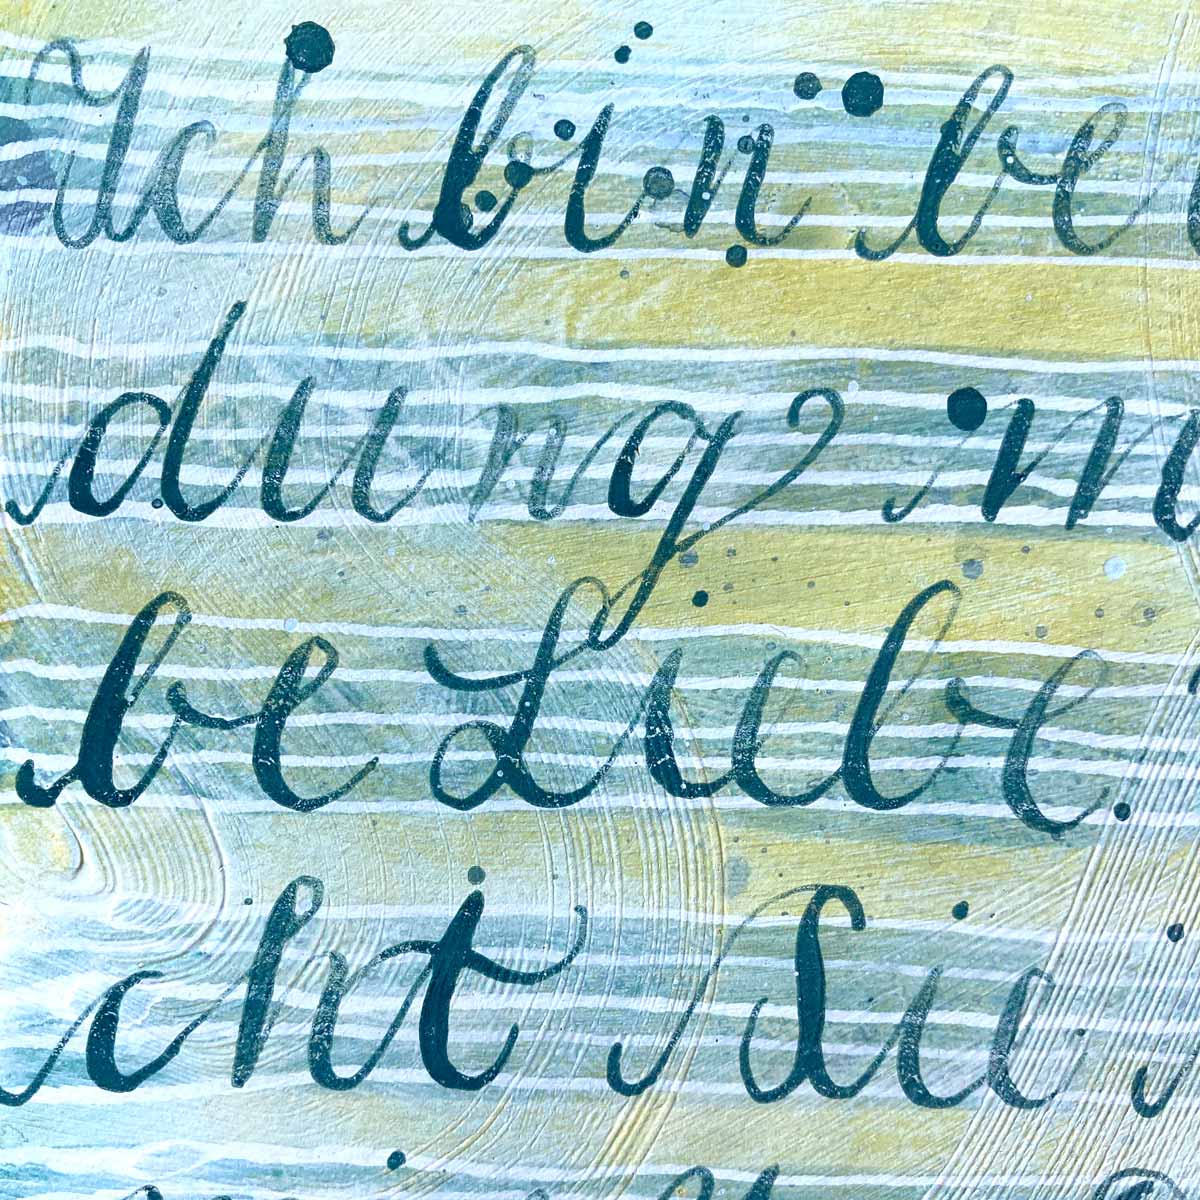 Ich bin be
dung m
be Liebe.
cht Die